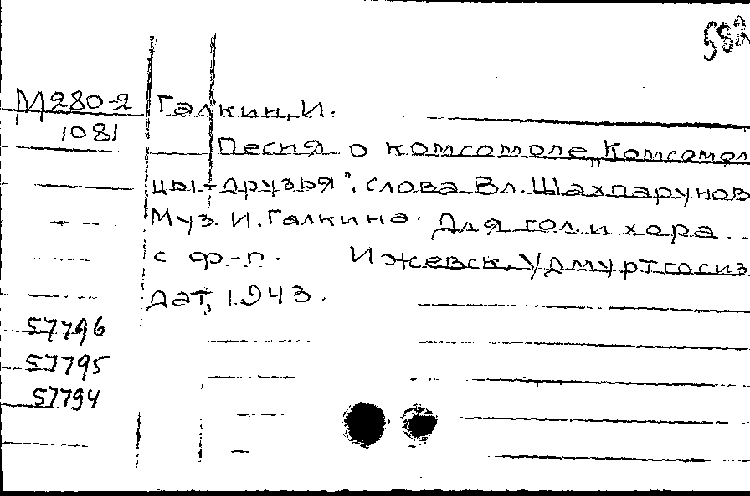 582
М280-2
1081
Галкин, И.
Песня о комсомоле „Комсомол
цы-друзья". Слова Вл. Шахпарунов
Муз. И. Галкина. Для гол. и хора
с ф-п. Ижевск, Удмуртгосиз
дат, 1943.
57796
57795
57794